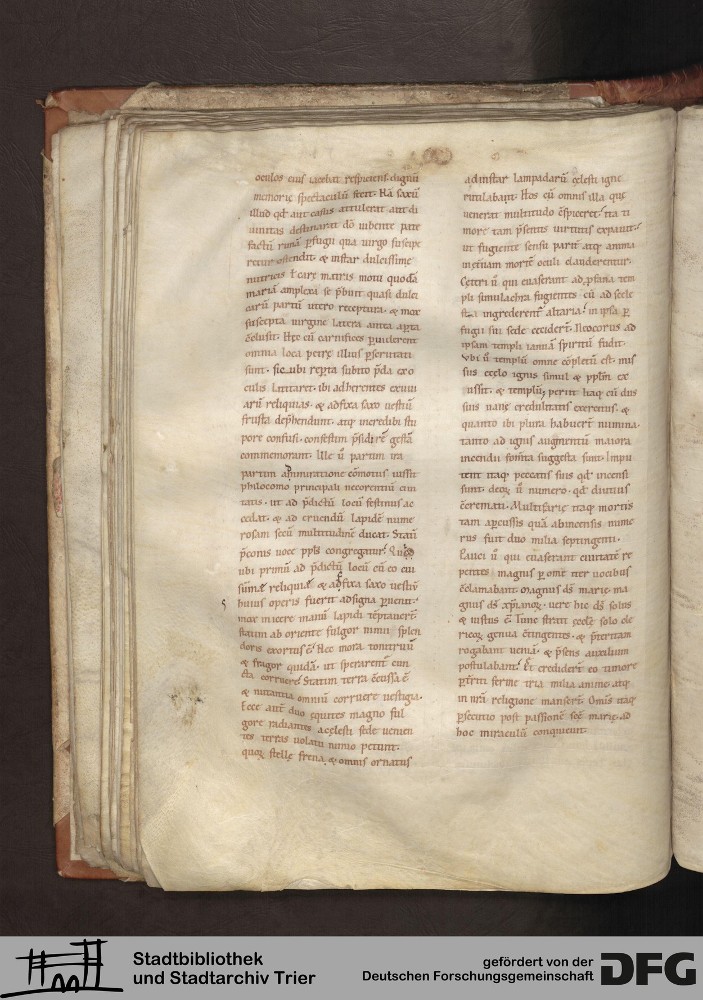 oculos eius iaceban respiciens. dignũ
memorie spectaculũ stetit. Hã saxũ
illud qđ aut casus attulerat aut di
uinitas destinarat dõ uibente pate
factũ
retur ostendit. & instar dulcissime
nutricis ł carę matris motu quodã
mariã amplexa se p̃buit quasi dulci
carũ partũ utero receptura. & mox
suscepta uirgine latera aurea aꝑta
c̃clusit. Hęc cũ carnifices ꝓuiderent
omnia loca petrę illius ꝑscrutati
sunt. sic ubi rep̃ta subito p̃da ex o
culis latitaret. ibi adherentes exuui
arũ reliquias. & adfixa saxo uestiũ
frusta dep̃hendunt. atq; incredibi stu
pore confusi. confestim p̃sidi rẽ gestã
commemorant. Ille ũ partim ira
partim ammiratione cõmotus iussit
philocomo principali necorentiũ ciui
tatis. ut ad p̃dictũ locũ festinus ac
cedat. & ad eruendũ lapidẽ nume
rosam secũ multitudinẽ ducat. Statĩ
p̃conis uoce ppłs congregatur.
ubi primũ ad p̃dictũ locũ cũ eo
reliquię & adfixa saxo uestiũ
huius operis fuerit adsigna ꝑuenit.
mox inicere manũ lapidi tẽptauerẽ.
statim ab oriente fulgor nimii splen
doris exortus ẽ. Hec mora tonitruũ
& fragor quidã. ut sperarent cun
cta corruere. Statim terra c̃cussa ẽ
& nutantia omniũ corruere uestigia.
Ecce aut̃ duo equites magno ful
gore radiantes a cęlesti sede uenien
tes terras uolatu nimio petunt.
quoꝝ stellę frena. & omnis ornatus
ad instar lampadarũ cęlesti igne
rutilabant. Hos cũ omnis illa quę
uenerat multitudo c̃spiceret. ita ti
more tam p̃sentis uirtutis expauit.
ut fugiente sensu parit̃ atq; anima
in ęt̃nam mortẽ oculi clauderentur.
Cęteri ũ qui euaserant ad ꝓfana tem
pli simulachra fugientes cũ ad scele
sta ingrederent̃ altaria. in ipsa ꝑ
fugii sui sede cecidert̃. Ilicocurs ad
ipsam templi ianuã spiritũ fudit.
Vbi ũ templũ omne cõpletũ est. mis
sus ęcelo ignis simul & pplm̃ ex
ussit. & templũ; periit itaq; cũ diis
suis uanę credulitatis exercitus. &
quanto ibi plura habuert̃ numina.
tanto ad ignis augmentũ maiora
incendii fom̃ta suggesta sunt. Impu
tent itaq; peccatis suis qđ incensi
sunt. deoꝝ ũ numero. qđ diutius
c̃cremati. Multifarie itaq; mortis
tam ꝑcussis quã abincensis nume
rus fuit duo milia septingenti.
Pauci ũ qui euaserant ciuitatẽ re
petentes magnis ꝑ om̃e iter uocibus
c̃clamabant. Magnus dš marię. ma
gnus dš xp̃ianoꝝ. uere hic dš solus
& iustus ẽ. Tunc strati ęcclę solo cle
ricoꝝ genua c̃tingentes. & p̃teritam
rogabant ueniã. & p̃sens auxilium
postulabant. Et crediderť eo timore
ꝑt̃riti ferme tria milia anime. atq;
in nr̃i religione manserť. Omis itaq;
ꝑsecutio post passionẽ sce marię. ad
hoc miraculũ conquieuit.
Stadtbibliothek
und Stadtarchiv Trier
gefördert von der
Deutschen Forschungsgemeinschaft
DFG